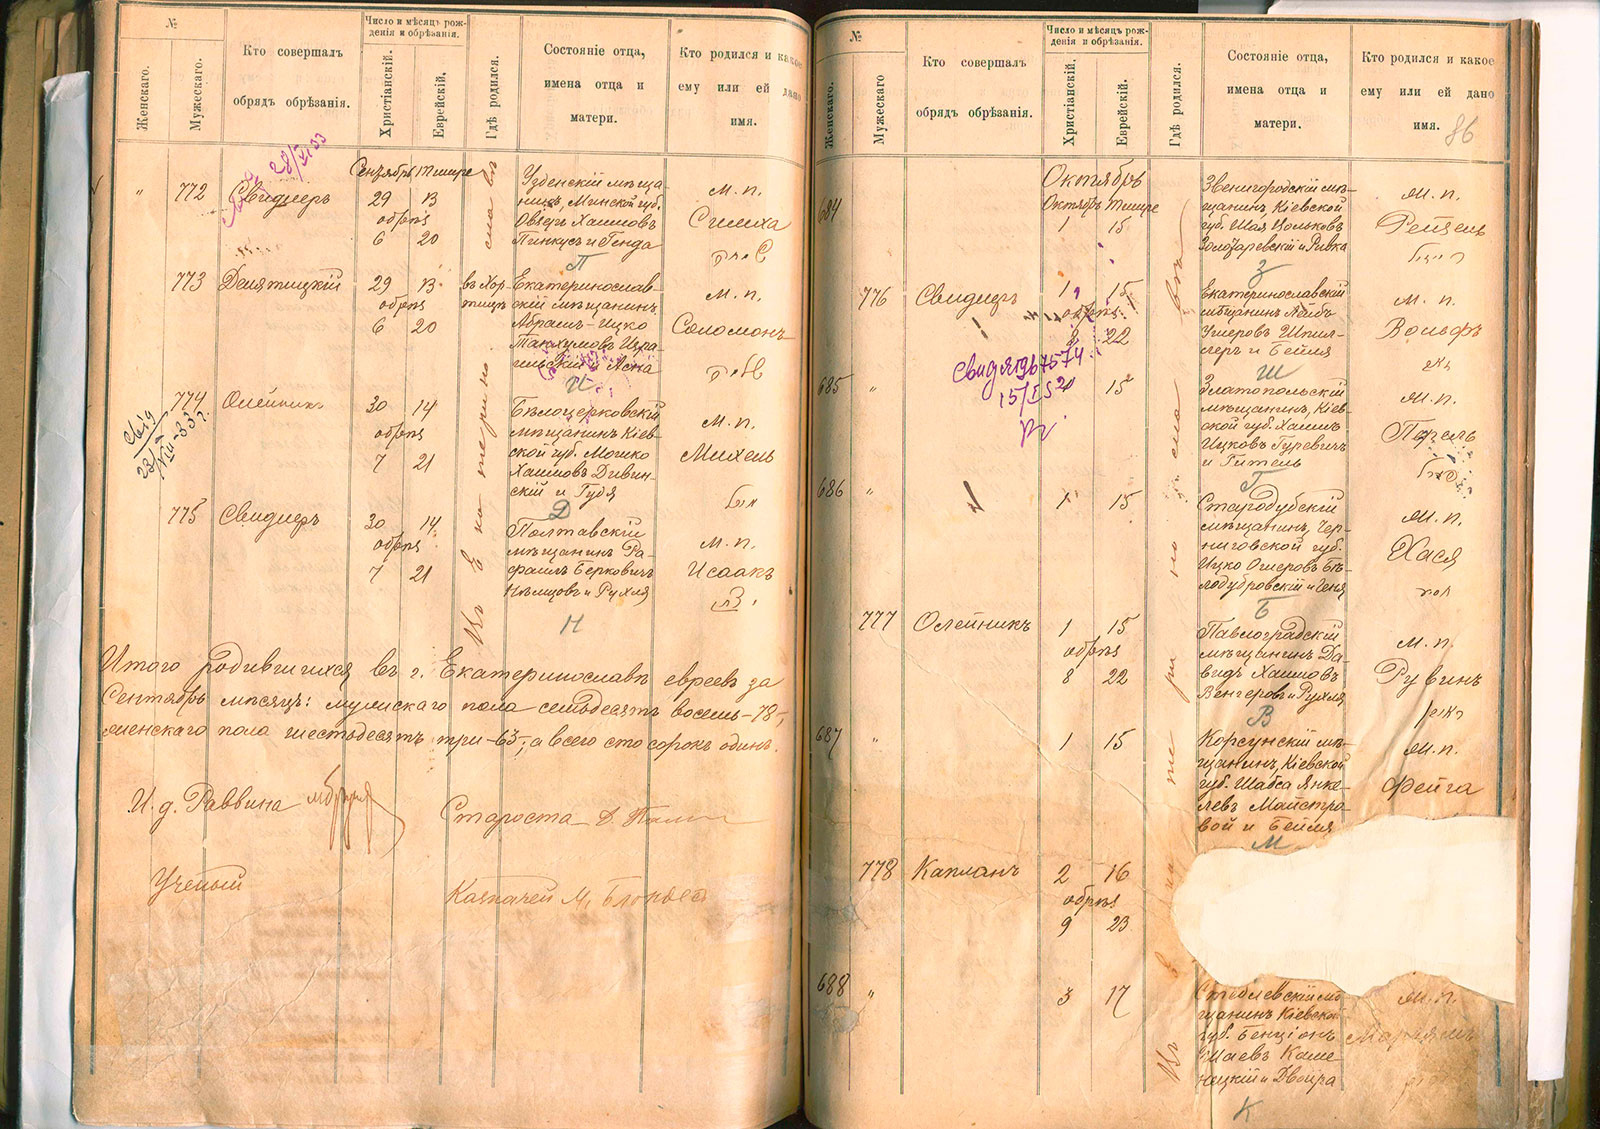 №
Женскаго.
Мужескаго.
Кто совершалъ
обрядъ обрѣзанія.
Число и мѣсяцъ рож-
денія и обрѣзанія.
Христіанскій.
Еврейскій.
Гдѣ родился.
Состояніе отца,
имена отца и
матери.
Кто родился и какое
ему или ей дано
имя.
28/XI 33
Сентябрь Тишре
" 772 Свидлеръ
29 13
обрѣз
6 20
Узденскій мѣща-
нинъ, Минской губ.
Овзеръ Хаимовъ
Пинкусъ и Генда
П
м. п.
Симха
773
29 13
обрѣз
6 20
въ Хор-
тицѣ
Екатеринослав-
скій мѣщанинъ
Абрамъ-Ицко
Танхумовъ Изра-
ильскій и Асна
И
м. п.
Соломонъ
774 Олейникъ
свид
23/XII-33 г.
30 14
обрѣз
7 21
Бѣлоцерковскій
мѣщанинъ Кіев-
ской губ. Мошко
Хаимовъ Дивин-
скій и Гудя
Д
м. п.
Михель
775 Свидлеръ
30 14
обрѣз
7 21
Полтавскій
мѣщанинъ Ра-
фаилъ Берковичъ
Нѣмцовъ и Рухля
Н
м. п.
Исаакъ
Въ Екатеринославѣ
Итого родившихся въ г. Екатеринославѣ евреевъ за
Сентябрь мѣсяцъ: мужскаго пола семьдесятъ восемь-78-,
женскаго пола шестьдесятъ три-63-, а всего сто сорокъ одинъ.
И. д. Раввина
Староста Д.
Ученый
Казначей М.
№
Женскаго.
Мужескаго
Кто совершалъ
обрядъ обрѣзанія.
Число и мѣсяцъ рож-
денія и обрѣзанія.
Христіанскій.
Еврейскій.
Гдѣ родился.
Состояніе отца,
имена отца и
матери.
Кто родился и какое
ему или ей дано
имя.
86
Октябрь
Октябрь Тишре
684
1 15
Звенигородскій мѣ-
щанинъ, Кіевской
губ. Шая Вольковъ
Золотаревскій и Ривка
З
м. п.
Рейзель
776 Свидлеръ
1 15
обрѣз.
8 22
Екатеринославскій
мѣщанинъ Лейбъ
Ушеровъ Шпил-
леръ и Бейля
Ш
м. п.
Вольфъ
15/I 52
685 "
15
Златопольскій
мѣщанинъ, Кіев-
ской губ. Хаимъ
Ицковъ Гуревичъ
и Гитель
Г
м. п.
Перель
686 "
1 15
Стародубскій
мѣщанинъ, Чер-
ниговской губ.
Ицко Ошеровъ Бѣ-
лодубровскій и Геня
Б
м. п.
Хася
777 Олейникъ
1 15
обрѣз
8 22
Павлоградскій
мѣщанинъ Да-
видъ Хаимовъ
Венгеровъ и Рухля
В
м. п.
Рувинъ
687 "
1 15
Корсунскій мѣ-
щанинъ, Кіевской
губ. Шабса Янке-
левъ Майстро-
вой и Бейля
М
м. п.
Фейга
778 Капланъ
2 16
обрѣз
9 23
688 "
3 17
Стеблевскій мѣ-
щанинъ Кіевской
губ. Бенціонъ
Шаевъ Каме-
нецкій и Двойра
К
м. п.
Маріямъ
Въ Екатеринославѣ